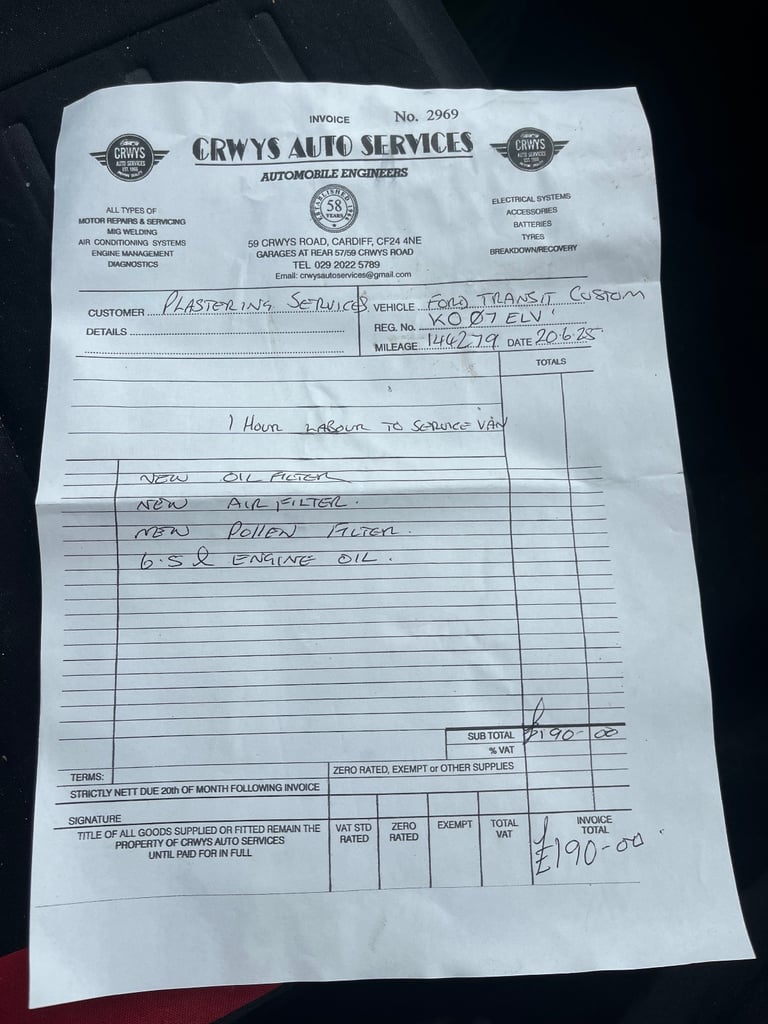 INVOICE No. 2969
CRWYS AUTO SERVICES
AUTOMOBILE ENGINEERS
CRWYS
AUTO SERVICES
CRWYS
AUTO SERVICES
ESTABLISHED
58
YEARS
ALL TYPES OF
MOTOR REPAIRS & SERVICING
MIG WELDING
AIR CONDITIONING SYSTEMS
ENGINE MANAGEMENT
DIAGNOSTICS
59 CRWYS ROAD, CARDIFF, CF24 4NE
GARAGES AT REAR 57/59 CRWYS ROAD
TEL 029 2022 5789
Email: crwysautoservices@gmail.com
ELECTRICAL SYSTEMS
ACCESSORIES
BATTERIES
TYRES
BREAKDOWN/RECOVERY
CUSTOMER PLASTERING SERVICES
DETAILS
VEHICLE FORD TRANSIT CUSTOM
REG. No. KO Ø7 ELV
MILEAGE 144279 DATE 20.6.25
TOTALS
1 HOUR LABOUR TO SERVICE VAN
NEW OIL FILTER
NEW AIR FILTER.
NEW POLLEN FILTER.
6.5 l ENGINE OIL.
SUB TOTAL £190-00
% VAT
TERMS:
STRICTLY NETT DUE 20th OF MONTH FOLLOWING INVOICE
ZERO RATED, EXEMPT or OTHER SUPPLIES
SIGNATURE
TITLE OF ALL GOODS SUPPLIED OR FITTED REMAIN THE
PROPERTY OF CRWYS AUTO SERVICES
UNTIL PAID FOR IN FULL
VAT STD
RATED
ZERO
RATED
EXEMPT
TOTAL
VAT
INVOICE
TOTAL
£190-00